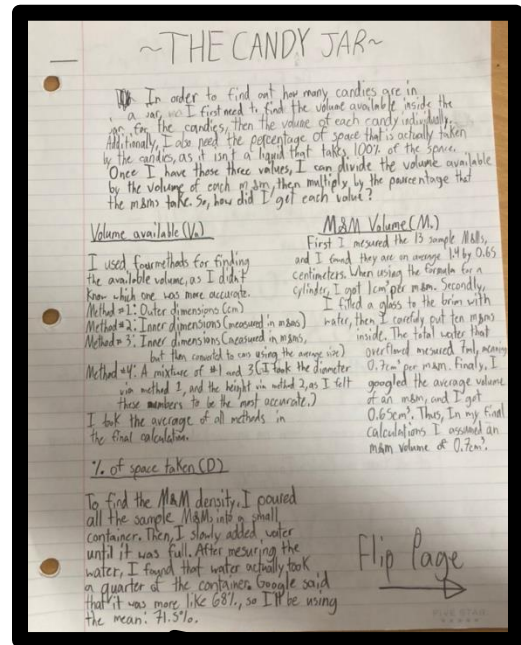 ~THE CANDY JAR~
In order to find out how many candies are in
a jar, I first need to find the volume available inside the
jar for the candies, then the volume of each candy individually.
Additionally, I also need the percentage of space that is actually taken
by the candies, as it isn't a liquid that takes 100% of the space.
Once I have those three values, I can divide the volume available
by the volume of each m&m, then multiply by the pourcentage that
the m&ms take. So, how did I get each value?
Volume available (Va)
I used four methods for finding
the available volume, as I didn't
know which one was more accurate.
Method #1: Outer dimensions (cm)
Method #2: Inner dimensions (measured in m&ms)
Method #3: Inner dimensions (measured in m&ms,
but then converted to cms using the average size)
Method #4: A mixture of #1 and 3 (I took the diameter
via method 1, and the height via method 2, as I felt
these numbers to be the most accurate.)
I took the average of all methods in
the final calculation.
M&M Volume (M.)
First I mesured the 13 sample M&Ms,
and I found they are on average 1.4 by 0.65
centimeters. When using the formula for a
cylinder, I got 1cm³ per m&m. Secondly,
I filled a glass to the brim with
water, then I carefully put ten m&ms
inside. The total water that
overflowed mesured 7ml, meaning
0.7cm³ per m&m. Finally, I
googled the average volume
of an m&m, and I got
0.65cm³. Thus, In my final
calculations I assumed an
m&m volume of 0.7cm³.
% of space taken (D)
To find the M&M density, I poured
all the sample M&Ms into a small
container. Then, I slowly added water
until it was full. After mesuring the
water, I found that water actually took
a quarter of the container. Google said
that it was more like 68%, so I'll be using
the mean: 71.5%.
Flip Page
FIVE STAR